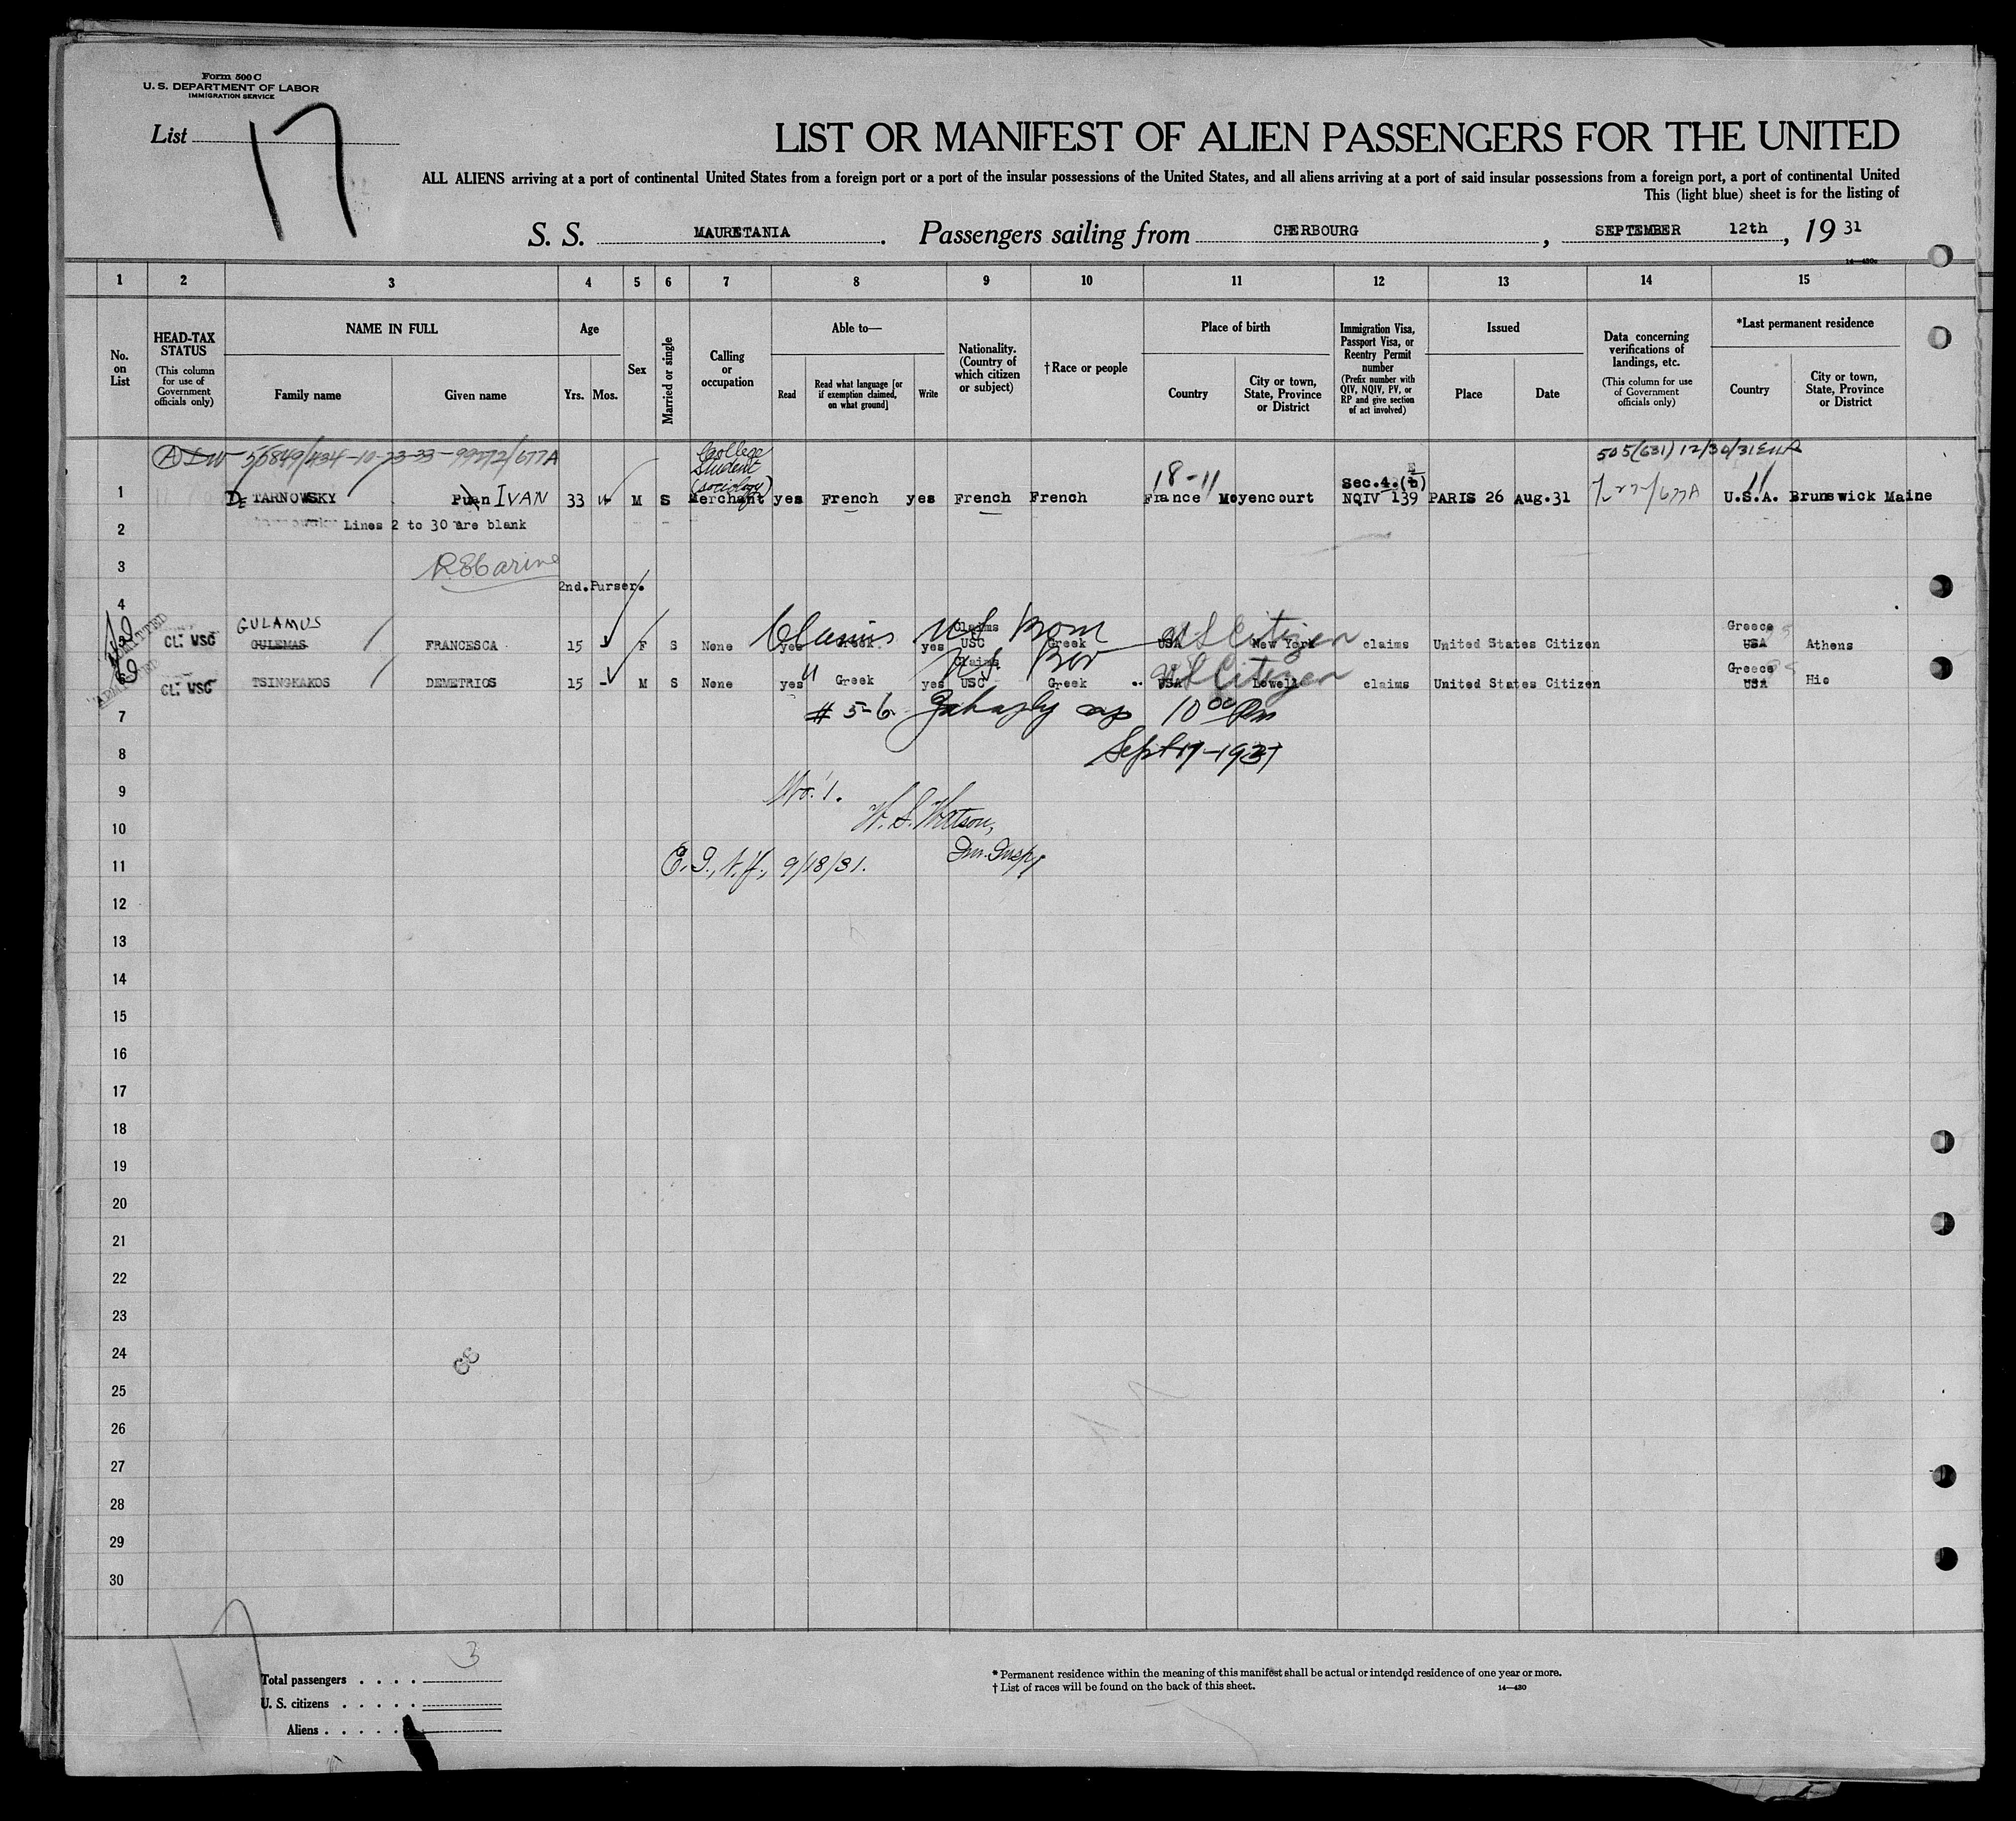 Form 500 C
U. S. DEPARTMENT OF LABOR
IMMIGRATION SERVICE
List 17
LIST OR MANIFEST OF ALIEN PASSENGERS FOR THE UNITED
ALL ALIENS arriving at a port of continental United States from a foreign port or a port of the insular possessions of the United States, and all aliens arriving at a port of said insular possessions from a foreign port, a port of continental United
This (light blue) sheet is for the listing of
S. S. MAURETANIA. Passengers sailing from CHERBOURG, SEPTEMBER 12th, 19 31
14—430c
1 2 3 4 5 6 7 8 9 10 11 12 13 14 15
No. on List
HEAD-TAX STATUS
(This column for use of Government officials only)
NAME IN FULL
Family name
Given name
Age
Yrs.
Mos.
Sex
Married or single
Calling or occupation
Able to—
Read
Read what language [or if exemption claimed, on what ground]
Write
Nationality. (Country of which citizen or subject)
† Race or people
Place of birth
Country
City or town, State, Province or District
Immigration Visa, Passport Visa, or Reentry Permit number
(Prefix number with QIV, NQIV, PV, or RP and give section of act involved)
Issued
Place
Date
Data concerning verifications of landings, etc.
(This column for use of Government officials only)
*Last permanent residence
Country
City or town, State, Province or District
College Student (sociology)
505(631) 12/30/31
18-11
Sec.4.
1 De TARNOWSKY IVAN 33 M S Merchant yes French yes French French France Moyencourt NQIV 139 PARIS 26 Aug.31 U.S.A. Brunswick Maine
2 Lines 2 to 30 are blank
3
2nd.Purser.
4
GULAMUS Claims US Born US Citizen Greece
CL: WSC GULEMAS FRANCESCA 15 F S None yes Greek yes Claims USC Greek USA New York claims United States Citizen USA Athens
US Citizen Greece
6 CL: WSC TSINGKAKOS DEMETRIOS 15 - M S None yes Greek yes Claims USC Greek USA Lowell claims United States Citizen USA Hio
7 # 5-6 10 00
8 Sept 17-1931
9 No. 1.
10 W. S. Watson,
11 9/18/31. Im. Insp.
12
13
14
15
16
17
18
19
20
21
22
23
24
25
26
27
28
29
30
Total passengers . . . . 3
U. S. citizens . . . . .
Aliens . . . . .
* Permanent residence within the meaning of this manifest shall be actual or intended residence of one year or more.
† List of races will be found on the back of this sheet.
14—430